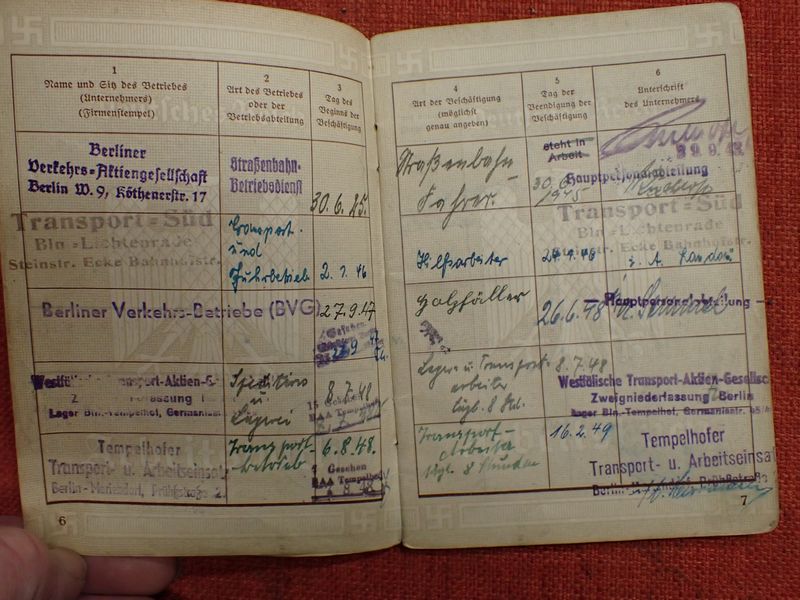 1
Name und Sitz des Betriebes
(Unternehmers)
(Firmenstempel)
2
Art des Betriebes
oder der
Betriebsabteilung
3
Tag des
Beginns der
Beschäftigung
Berliner
Verkehrs=Aktiengesellschaft
Berlin W. 9, Köthenerstr. 17
Straßenbahn-
Betriebsdienst
30. 6. 45.
Transport-Süd
Bln-Lichtenrade
Steinstr. Ecke Bahnhofstr.
Transport-
und
Fuhrbetrieb
2. 1. 46
Berliner Verkehrs-Betriebe (BVG)
27.9.47
Gesehen
Westfälische Transport-Aktien-G
Lager Bln.-Tempelhof, German
Spedition
u
Lagerei
8.7.48
Tempelhofer
Transport- u. Arbeitseinsatz
Berlin-Mariendorf, Prühßstraße 2
Transport-
betrieb
6.8.48.
Gesehen
BAA Tempelhof
6
4
Art der Beschäftigung
(möglichst
genau angeben)
5
Tag der
Beendigung der
Beschäftigung
6
Unterschrift
des Unternehmers
Straßenbahn-
Fahrer.
steht in
Arbeit
Hauptpersonalabteilung
Transport-Süd
Bln-Lichtenrade
Steinstr. Ecke Bahnhofstr.
Hilfsarbeiter
Holzfäller
26.6.48
Hauptpersonalabteilung
Lager- u Transport-
arbeiter
tägl. 8 Std.
8.7.48
Westfälische Transport-Aktien-Gesellsc
Zweigniederlassung Berlin
Lager Bln.-Tempelhof, Germaniastr.
Transport-
arbeiter
tägl. 8 Stunden
16.2.49
Tempelhofer
Transport- u. Arbeitseinsat
7